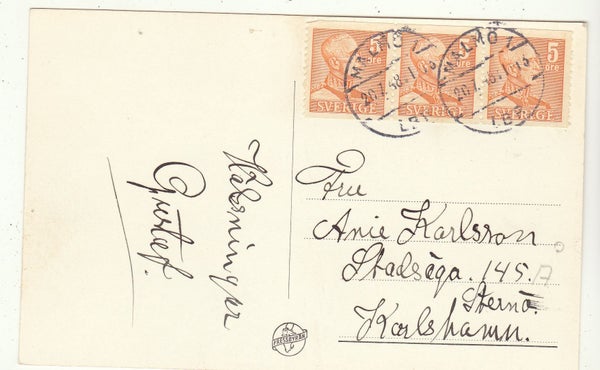 5
öre
SVERIGE
5
öre
SVERIGE
5
öre
SVERIGE
MALMÖ 1
20.1.48.
LBR
MALMÖ 1
20.1.48.
LBR
Hälsningar
Gustaf.
Fru
Anie Karlsson
Stadsäga. 145. A
Sternö.
Karlshamn.
PRESSBYRÅN